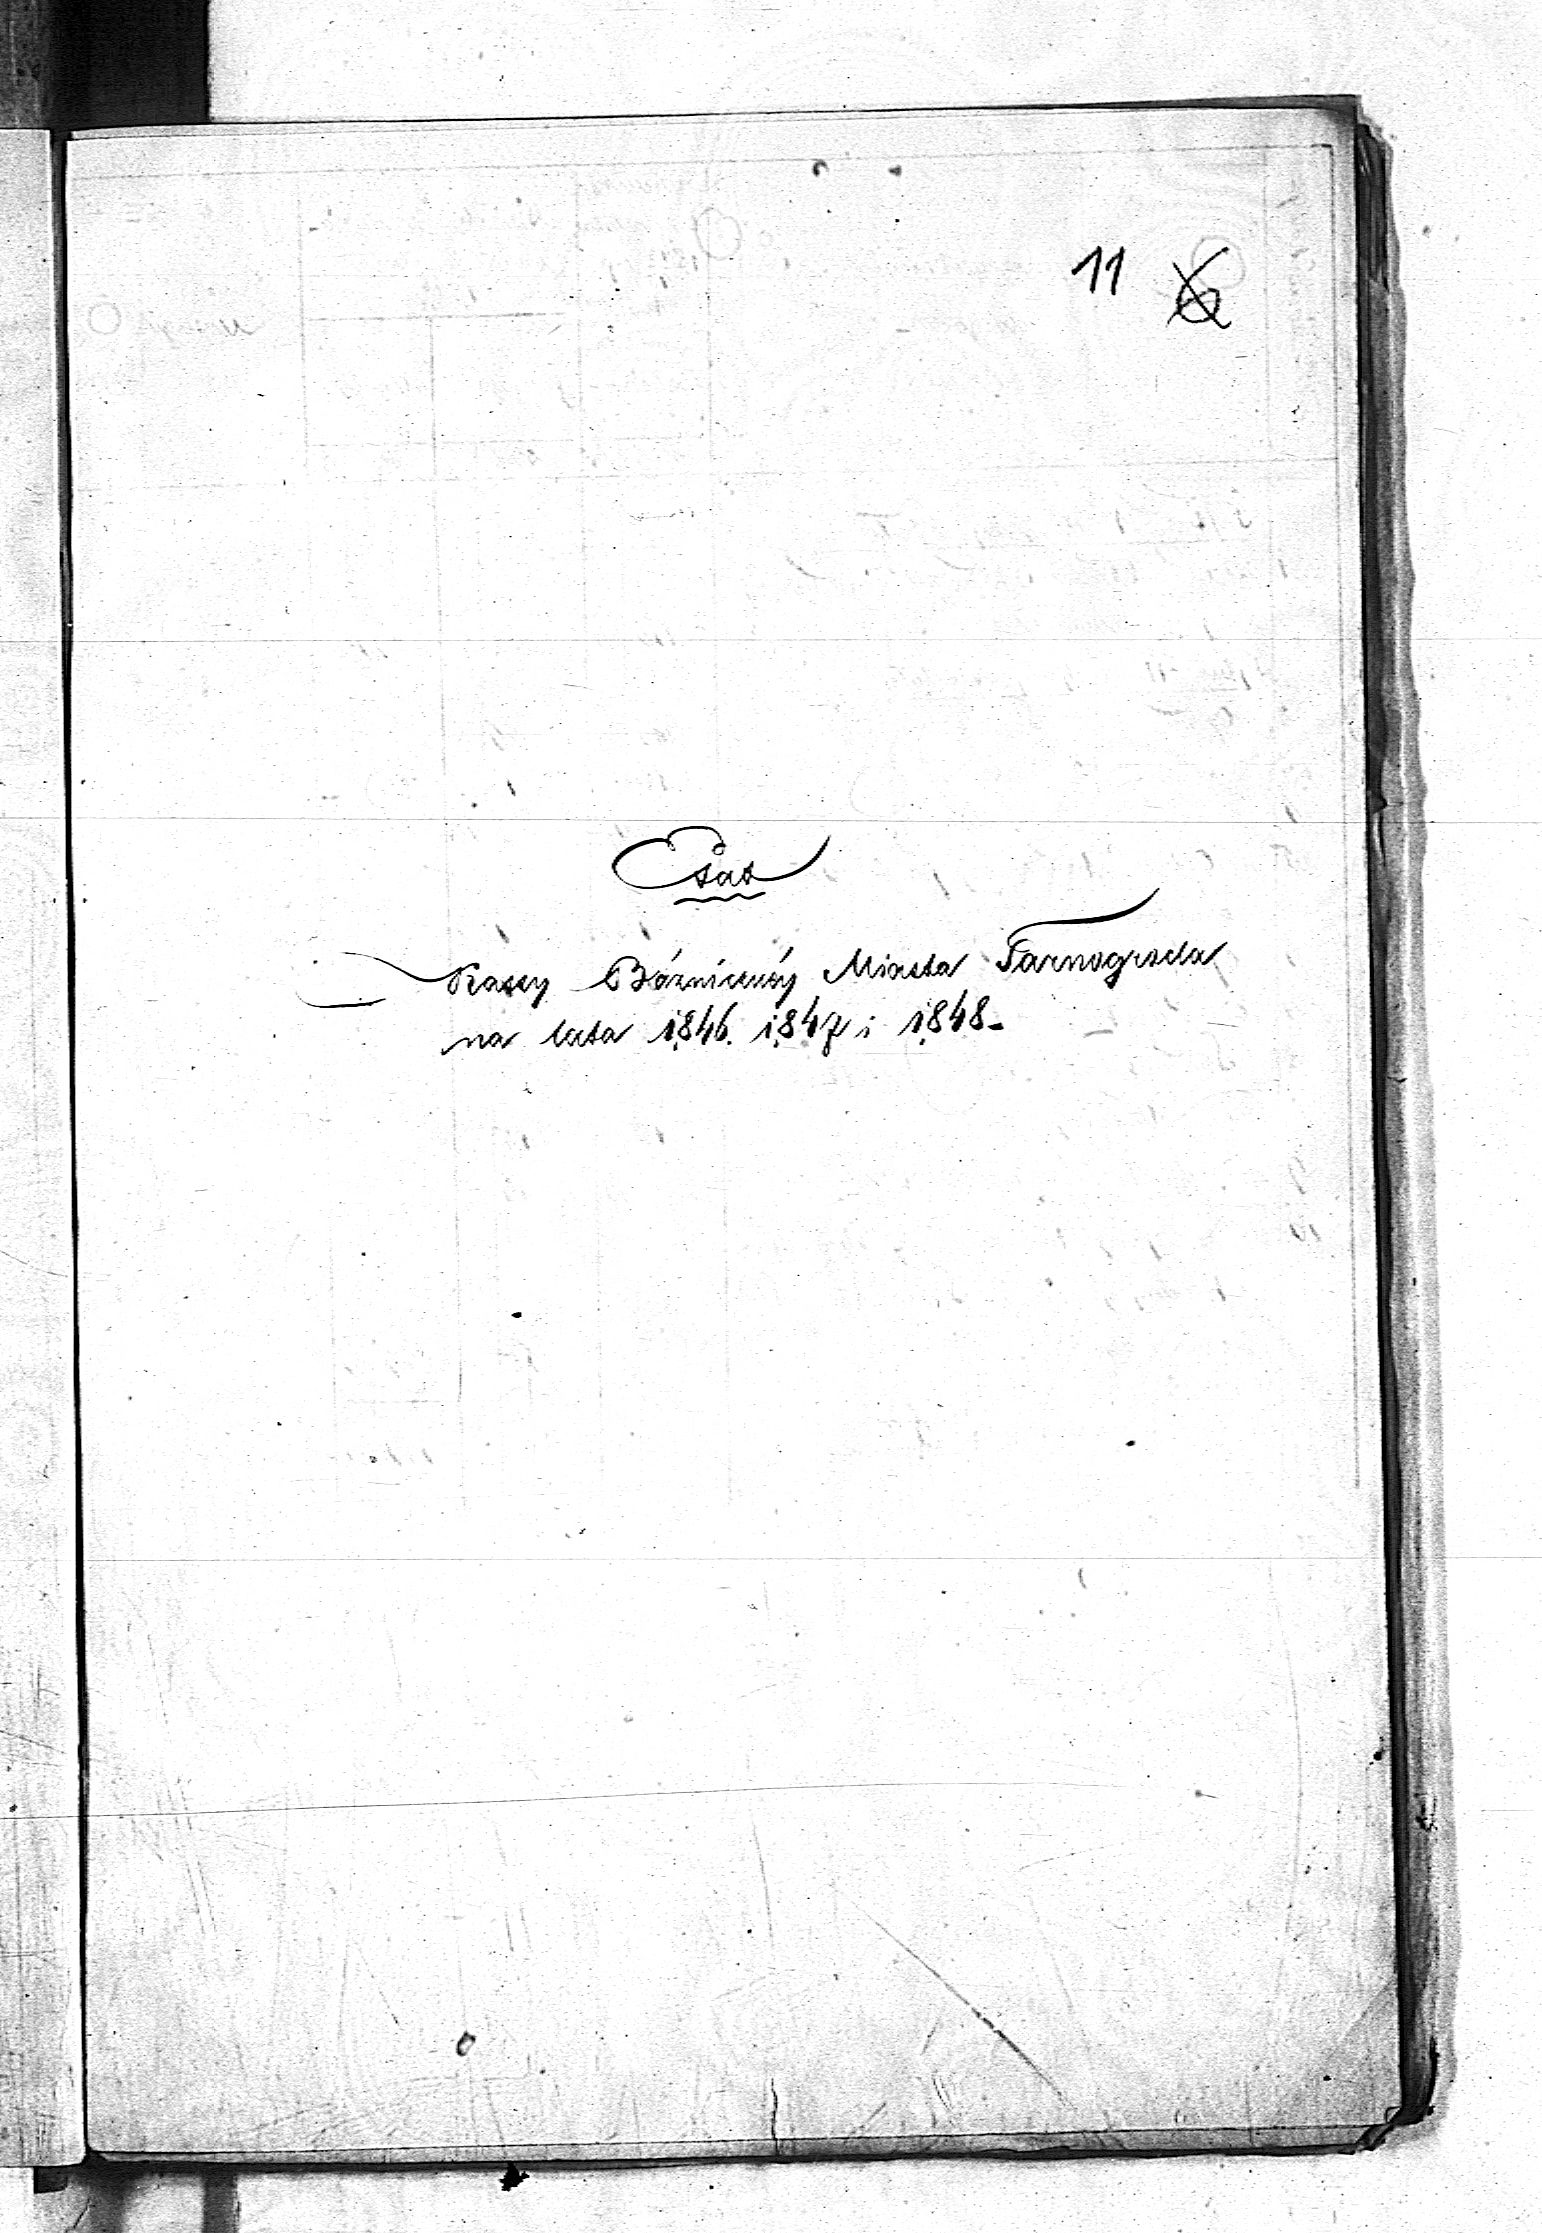 11 6
Etat
Kassy Bóżniczéy Miasta Tarnogroda
na lata 1846. 1847 i 1848-